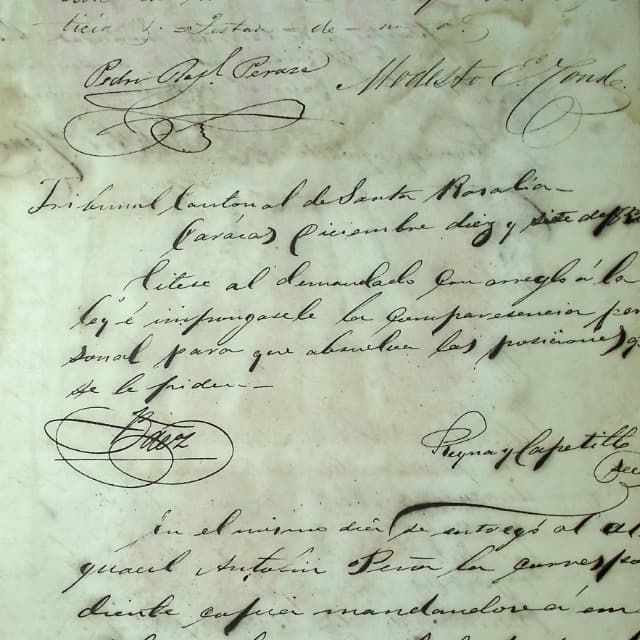 ticia y
Pedro Rafl. Peraza Modesto E. Conde
Tribunal Cantonal de Santa Rosalia
Carácas Diciembre diez y siete de
Cítese al demandado con arreglo á la
ley é impóngasele la comparesencia per
sonal para que absuelva las posiciones q
se le piden
Baez
Reyna y Capetillo
Sec
En el mismo dia se entregó al al
guacil Antolin Peña la correspo
diente copia mandandose á em